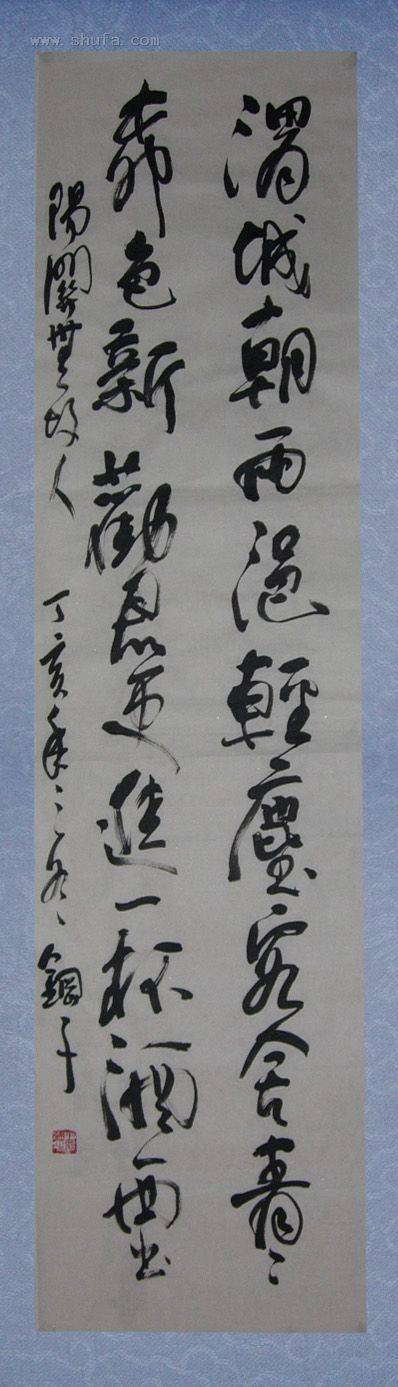 www.shufa.com
渭城朝雨浥輕塵客舍青〻
柳色新勸君更進一杯酒西出
陽關無故人 丁亥年